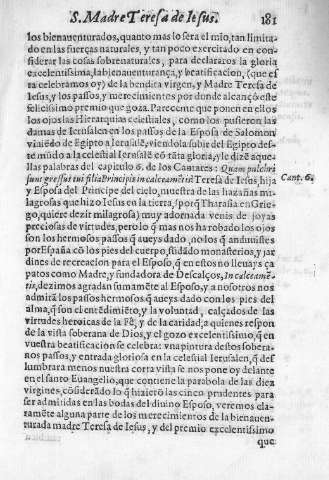 S. Madre Teresa de Iesus. 181
los bienauenturados, quanto mas lo sera el mio, tan limita-
do en las fuerças naturales, y tan poco exercitado en con-
siderar las cosas sobrenaturales, para declararos la gloria
excelentissima, la bienauenturança, y beatificacion, (que es
ta celebramos oy) de la bendita virgen, y Madre Teresa de
Iesus, y los passos, y merecimientos por donde alcançò este
felicissimo premio que goza. Parece me que ponen en ellos
los ojos las Hierarquias celestiales, como los pusieron las
damas de Ierusalen en los passos de la Esposa de Salomon
viniẽdo de Egipto a Ierusalẽ, viendola subir del Egipto des-
te mũdo a la celestial Ierusalẽ cõ tãta gloria, y le dizẽ aque-
llas palabras del capitulo 6. de los Cantares: Quam pulchri
sunt gressus tui filia Principis in calceamẽtis Teresa de Iesus, hija
Cant. 6.
y Esposa del Principe del cielo, nuestra de las hazañas mi-
lagrosas que hizo Iesus en la tierra, (porq̃ Tharasia en Grie-
go, quiere dezir milagrosa) muy adornada venis de joyas
preciosas de virtudes, pero lo q̃ mas nos ha robado los ojos
son los hermosos passos q̃ aueys dado, no los q̃ anduuistes
por España cõ los pies del cuerpo, fũdãdo monasterios, y jar
dines de recreacion para el Esposo, q̃ en estos no lleuays ça
patos como Madre, y fundadora de Descalços, In calceamẽ-
tis, dezimos agradan sumamẽte al Esposo, y a nosotros nos
admirã los passos hermosos q̃ aueys dado con los pies del
alma, q̃ son el entẽdimiẽto, y la voluntad, calçados de las
virtudes heroicas de la Fẽ, y de la caridad; a quienes respon
de la vista soberana de Dios, y el gozo excelentissimo, q̃ en
vuestra beatificacion se celebra: vna pintura destos sobera-
nos passos, y entrada gloriosa en la celestial Ierusalen, q̃ des
lumbrara menos nuestra corta vista se nos pone oy delante
en el santo Euangelio, que contiene la parabola de las diez
virgines, cõsiderãdo lo q̃ hizierõ las cinco prudentes para
ser admitidas en las bodas del diuino Esposo, veremos cla-
ramẽte alguna parte de los merecimientos de la bienauen-
turada madre Teresa de Iesus, y del premio excelentissimo
que